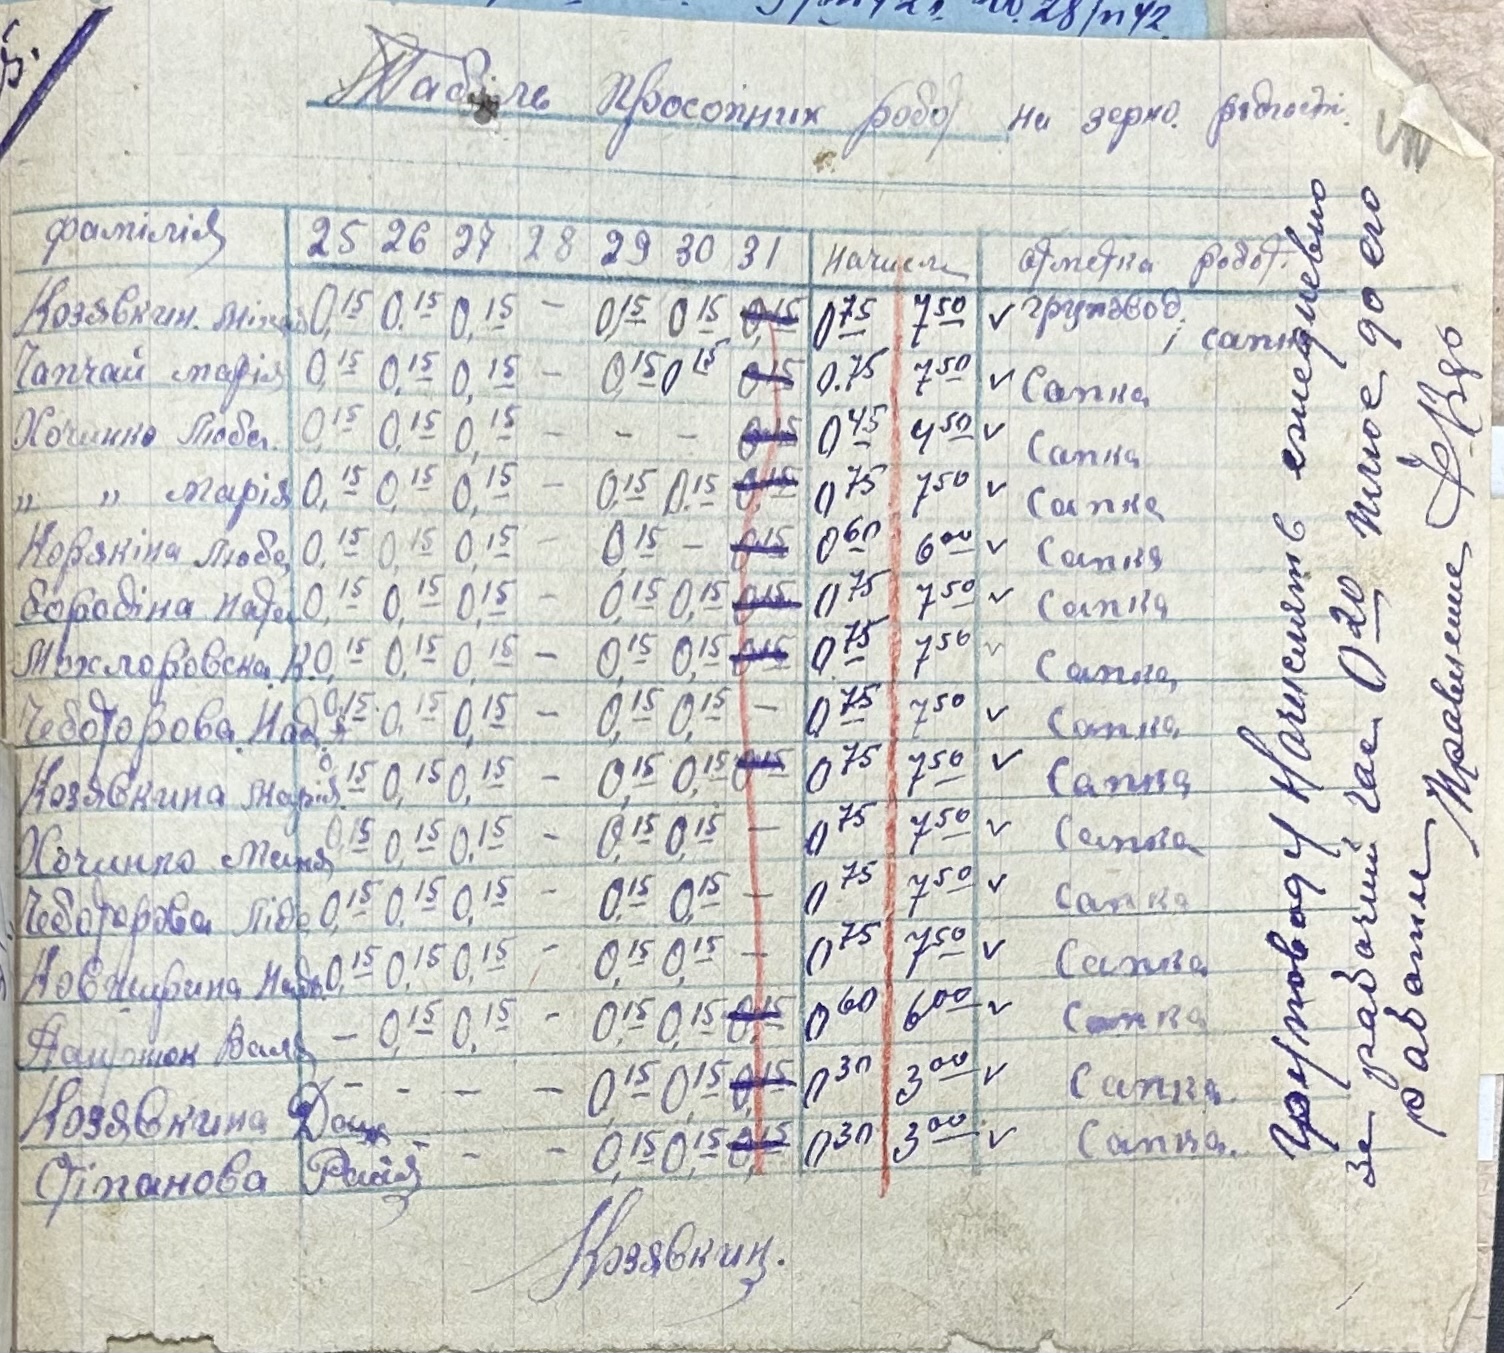 Табель просопник робо на зерно.
фамілія 25 26 27 28 29 30 31 начисл отметка робот.
Козявкин. Міхай 0,15 0.15 0,15 – 0,15 0,15 0,15 0 75 7 50 ✓ груповод.
і сапка
Чапчай марія 0,15 0,15 0,15 – 0,15 0 15 0 15 0.75 7 50 ✓ Сапка
Хочинко Люба. 0,15 0,15 0,15 – – – 0 15 0 45 4 50 ✓ Сапка
„ „ марія 0,15 0,15 0,15 – 0,15 0.15 0,15 0 75 7 50 ✓ Сапка
Корякіна Люба 0,15 0,15 0,15 – 0,15 – 0,15 0 60 6 00 ✓ Сапка
бородіна Надя 0,15 0,15 0,15 – 0,15 0,15 0,15 0 75 7 50 ✓ Сапка
В. 0,15 0,15 0,15 – 0,15 0,15 0,15 0 75 7 50 ✓ Сапка
Чеботорова Над. 0,15 0,15 0,15 – 0,15 0,15 – 0 75 7 50 ✓ Сапка
Козявкина Марія 0,15 0,15 0,15 – 0,15 0,15 0,15 0 75 7 50 ✓ Сапка
Хочинко Маня 0,15 0,15 0,15 – 0,15 0,15 – 0 75 7 50 ✓ Сапка
Чеботорова Ліда 0,15 0,15 0,15 – 0,15 0,15 – 0 75 7 50 ✓ Сапка
Надя 0,15 0,15 0,15 – 0,15 0,15 – 0 75 7 50 ✓ Сапка
Валя – 0,15 0,15 – 0,15 0,15 0,15 0 60 6 00 ✓ Сапка
Козявкина – – – – 0,15 0,15 0,15 0 30 3 00 ✓ Сапка.
Стіпанова Раїя – – – 0,15 0,15 0,15 0 30 3 00 ✓ Сапка.
Козявкин.
груповоду Начислять ежедневно
за рабочий час 0 20 плюс до его
работы
Правление